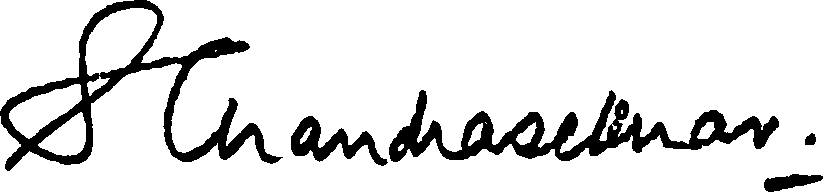 S Chandrasekhar.